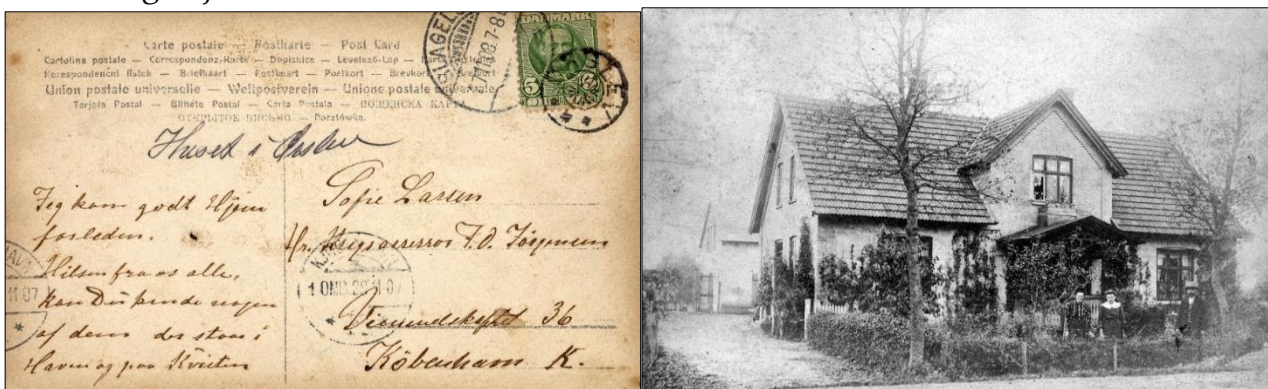 Carte postale — Postkarte — Post Card
Cartolina postale — Correspondenz-Karte — Dopisnice — Levelező-Lap
Korespondenční listek — Briefkaart — Postkaart — Postkort — Brevkort
Union postale universelle — Weltpostverein — Unione postale universale
Tarjeta Postal — Bilhete Postal — Carta Postala — ВСЕМІРНА КАРТА
ОТКРЫТОЕ ПИСЬМО. — Pocztówka.
DANMARK
5
SLAGEL
7-8
Huset i
Jeg kom godt Hjem
forleden.
Hilsen fra os alle,
kan Du kjende nogen
af dem der staar i
Haven og paa Kvisten
Sofie Larsen
Hr. Krigsassessor F. O. Jörgensen
36
Köbenhavn K.
1 OMB. 29 11 07
11 07